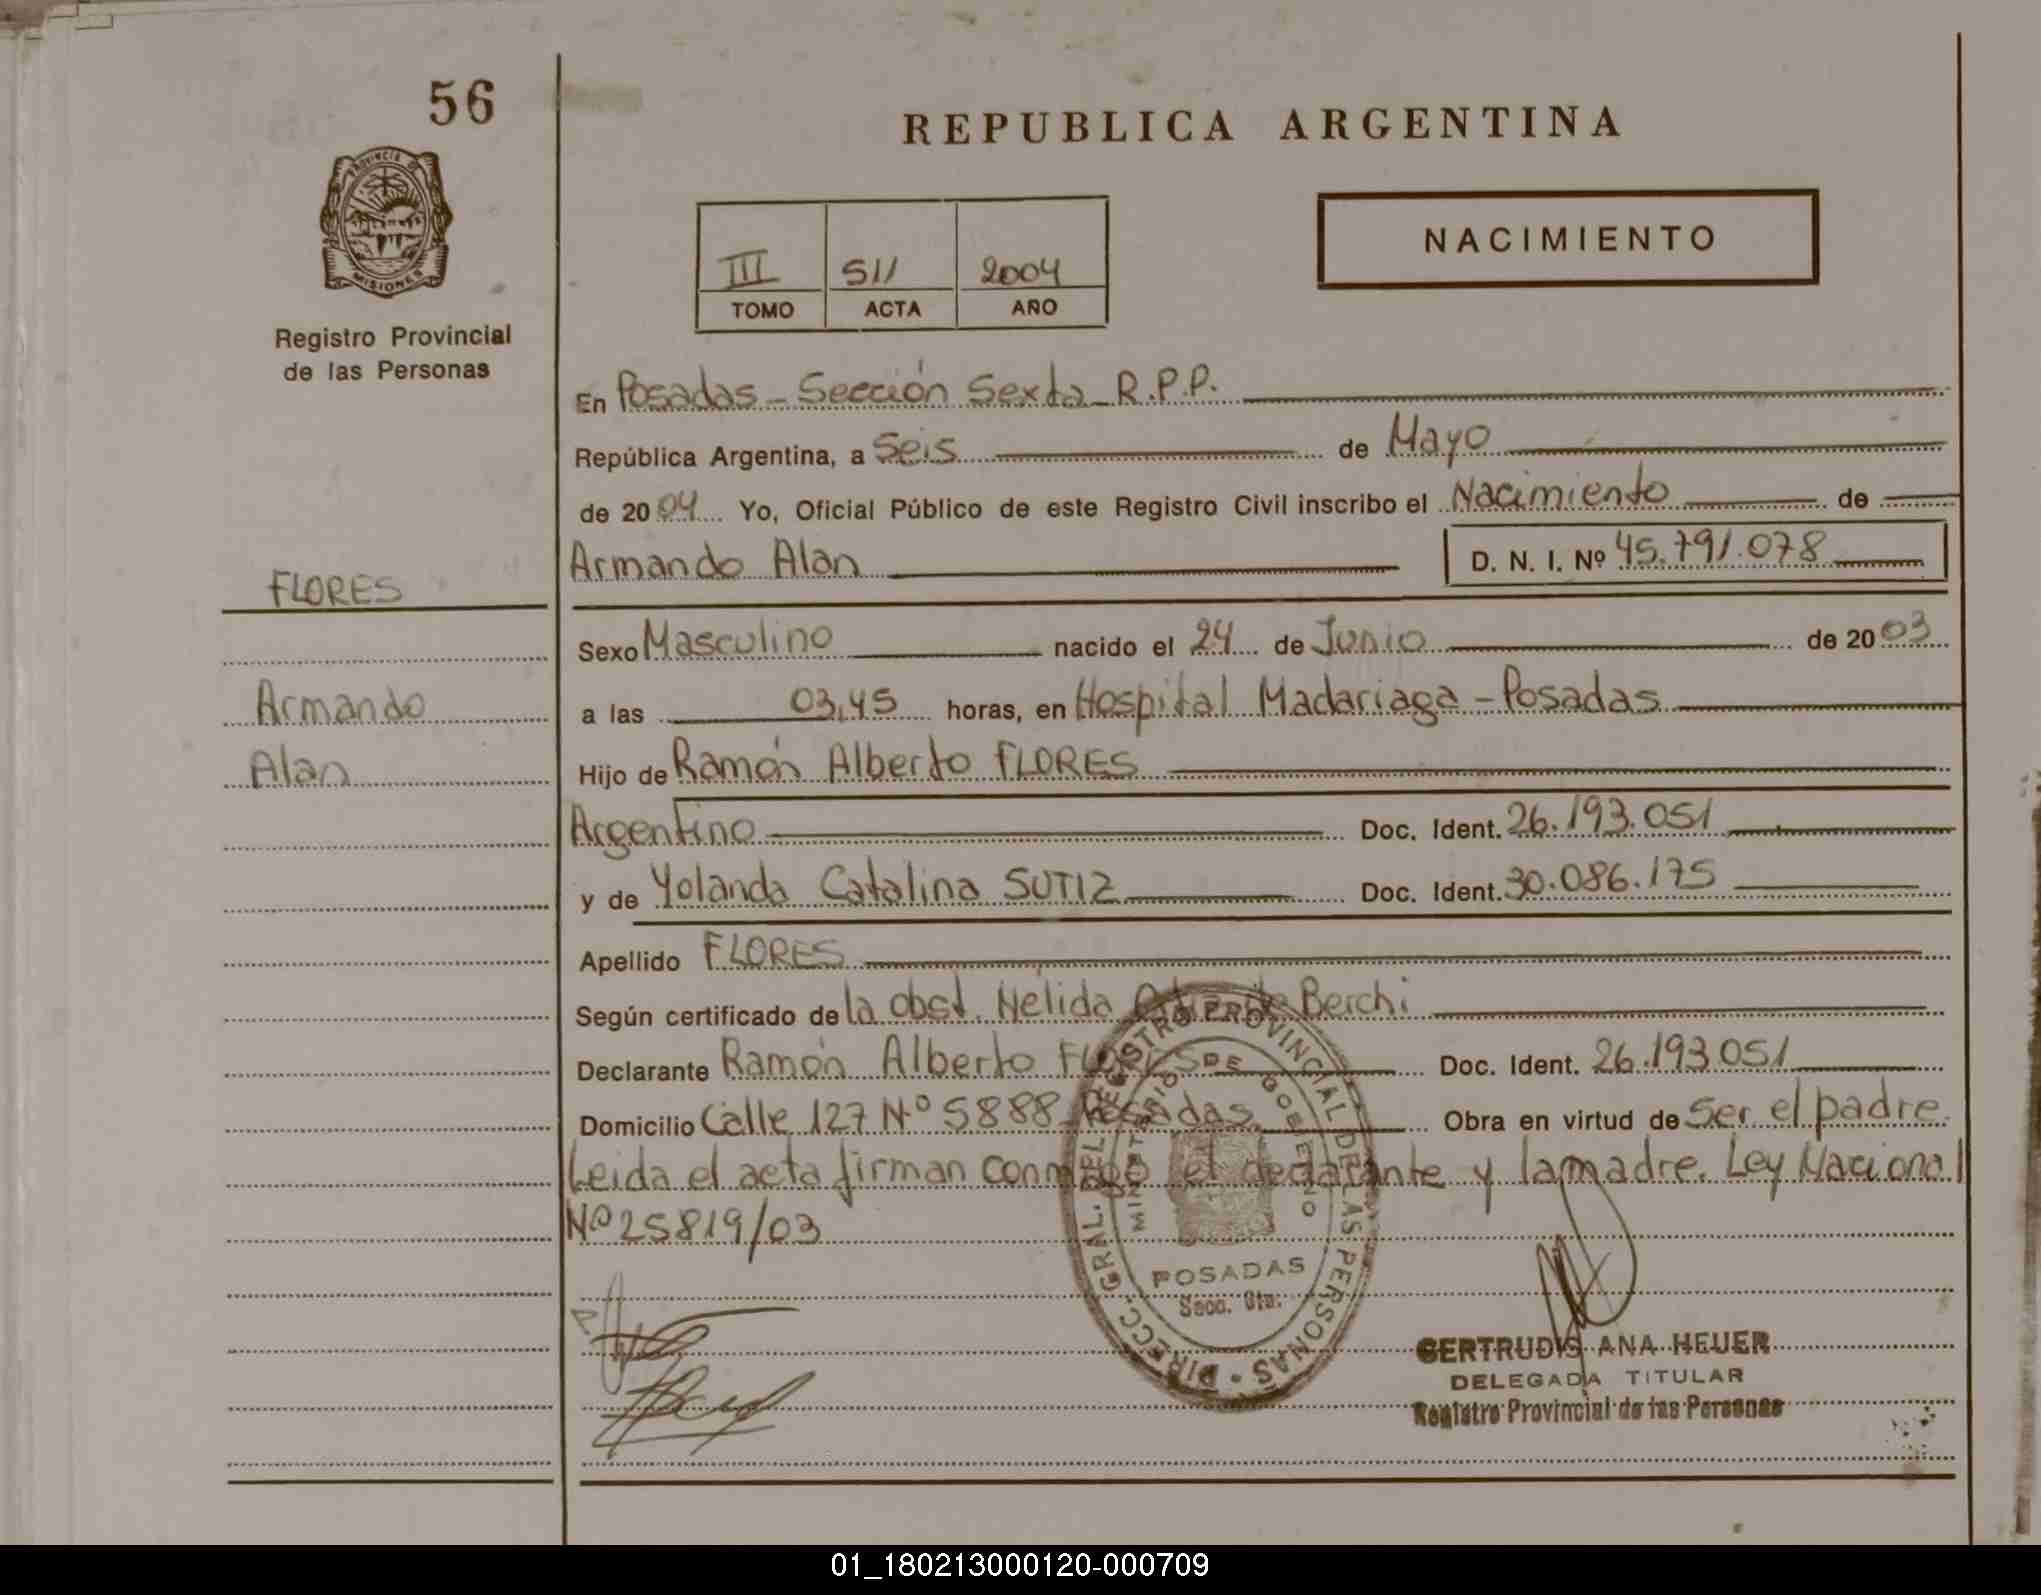 56
REPUBLICA ARGENTINA
PROVINCIA DE
MISIONES
Registro Provincial
de las Personas
III 511 2004
TOMO ACTA AÑO
NACIMIENTO
En Posadas - Sección Sexta - R.P.P.
República Argentina, a Seis de Mayo
de 2004 Yo, Oficial Público de este Registro Civil inscribo el Nacimiento de
Armando Alan D. N. I. Nº 45.791.078
FLORES
Armando
Alan
Sexo Masculino nacido el 24 de Junio de 2003
a las 03,45 horas, en Hospital Madariaga - Posadas
Hijo de Ramón Alberto FLORES
Argentino Doc. Ident. 26.193.051
y de Yolanda Catalina SUTIZ Doc. Ident. 30.086.175
Apellido FLORES
Según certificado de la obst. Nélida de Berchi
Declarante Ramón Alberto FLORES Doc. Ident. 26.193.051
Domicilio Calle 127 Nº 5888 Posadas Obra en virtud de Ser el padre.
Leida el acta firman conmigo el declarante y la madre. Ley Nacional
Nº 25819/03
DIRECC. GRAL. DEL REGISTRO PROVINCIAL DE LAS PERSONAS
MINISTERIO DE GOBIERNO
POSADAS
Secc. 6ta.
GERTRUDIS ANA HEUER
DELEGADA TITULAR
Registro Provincial de las Personas
01_180213000120-000709